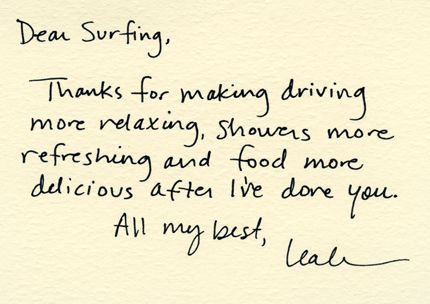 Dear Surfing,
Thanks for making driving
more relaxing, showers more
refreshing and food more
delicious after I've done you.
All my best,
Leah